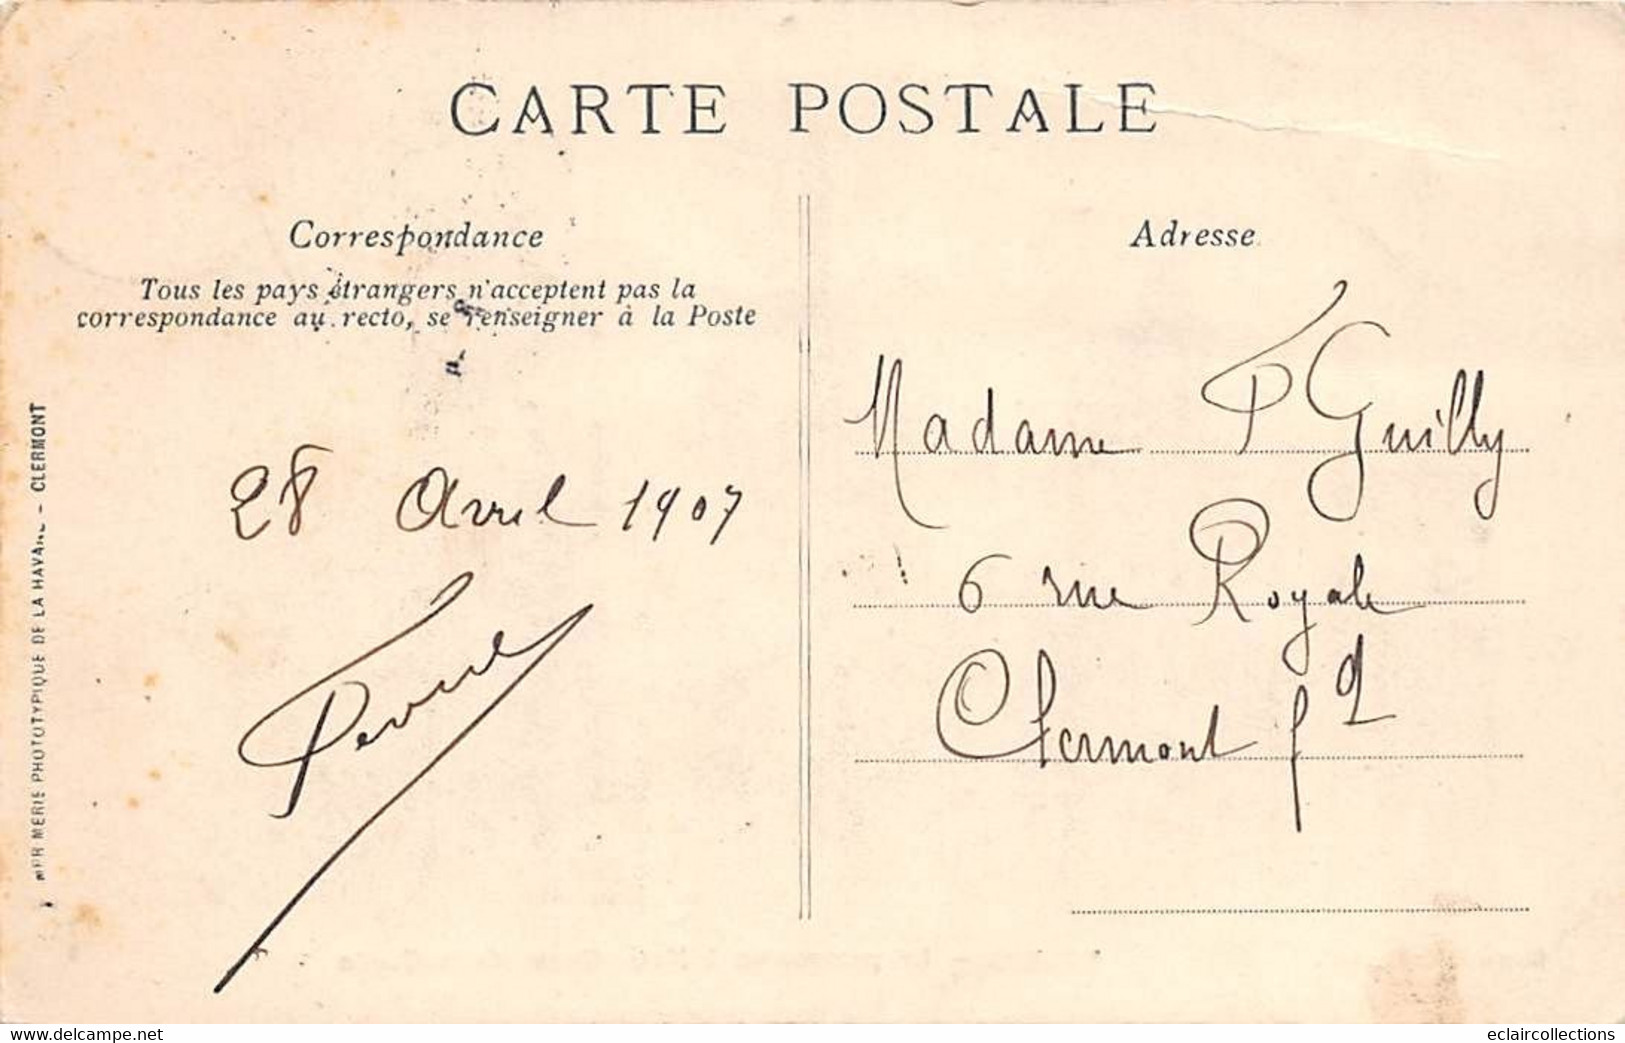 CARTE POSTALE
Correspondance
Tous les pays étrangers n'acceptent pas la
correspondance au recto, se renseigner à la Poste
28 Avril 1907
Adresse
Madame P Guilly
6 rue Royale
Clermont fd
PHOTOTYPIQUE DE LA HAVANE - CLERMONT
www.delcampe.net
eclaircollections